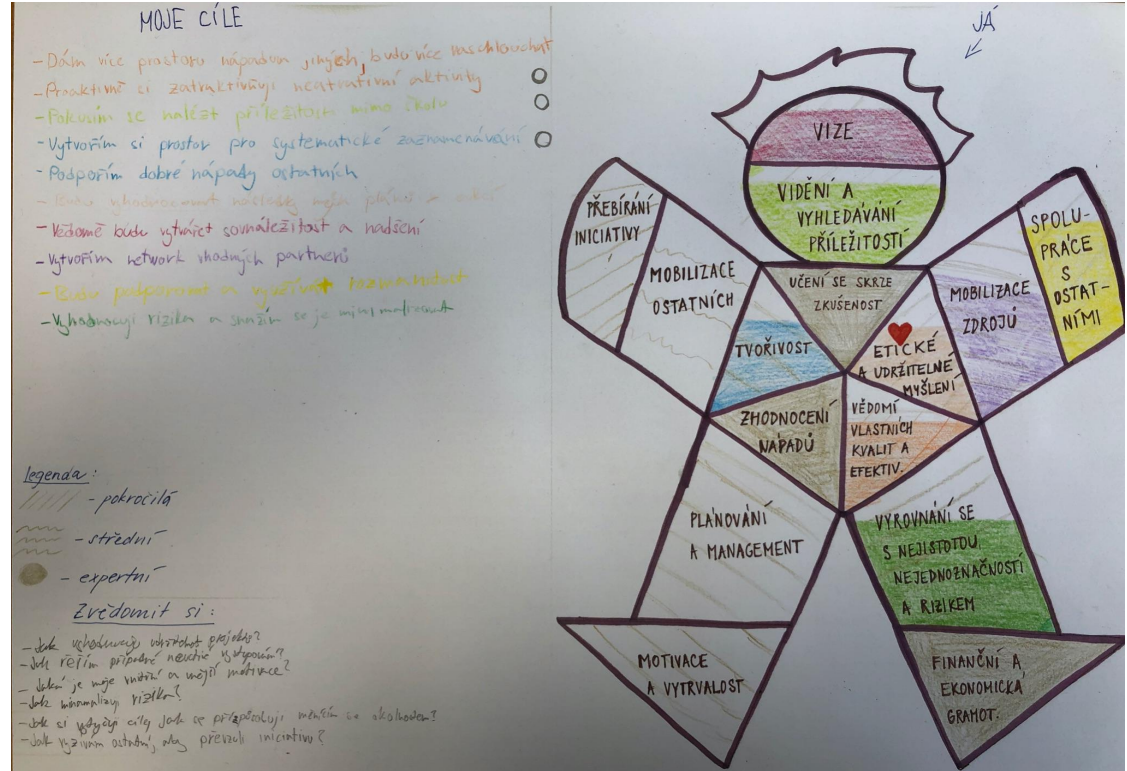 MOJE CÍLE
- Dám více prostoru nápadům jiných, budu více naslouchat
- Proaktivně si zatraktivňuji neatraktivní aktivity
- Pokusím se nalézt příležitosti mimo školu
- Vytvořím si prostor pro systematické zaznamenávání
- Podpořím dobré nápady ostatních
- Budu vyhodnocovat následky mých
- Vědomě budu vytvářet sounáležitost a nadšení
- Vytvořím network vhodných partnerů
- Budu podporovat a využívat rozmanitost
- Vyhodnocuji rizika a snažím se je minimalizovat
Legenda:
- pokročilá
- střední
- expertní
Zvědomit si:
- Jak vyhodnocuji projektů?
- Jak řeším případné
- Jaká je moje vnitřní a vnější motivace?
- Jak minimalizuji rizika?
- Jak si vytyčuji cíle, jak se přizpůsobuji měnícím se okolnostem?
- Jak vyzívám ostatní, aby převzali iniciativu?
JÁ
VIZE
VIDĚNÍ A
VYHLEDÁVÁNÍ
PŘÍLEŽITOSTÍ
PŘEBÍRÁNÍ
INICIATIVY
MOBILIZACE
OSTATNÍCH
UČENÍ SE SKRZE
ZKUŠENOST
MOBILIZACE
ZDROJŮ
SPOLU-
PRÁCE
S
OSTAT-
NÍMI
TVOŘIVOST
ETICKÉ
A UDRŽITELNÉ
MYŠLENÍ
ZHODNOCENÍ
NÁPADŮ
VĚDOMÍ
VLASTNÍCH
KVALIT A
EFEKTIV.
PLÁNOVÁNÍ
A MANAGEMENT
VYROVNÁNÍ SE
S NEJISTOTOU,
NEJEDNOZNAČNOSTÍ
A RIZIKEM
MOTIVACE
A VYTRVALOST
FINANČNÍ A
EKONOMICKÁ
GRAMOT.